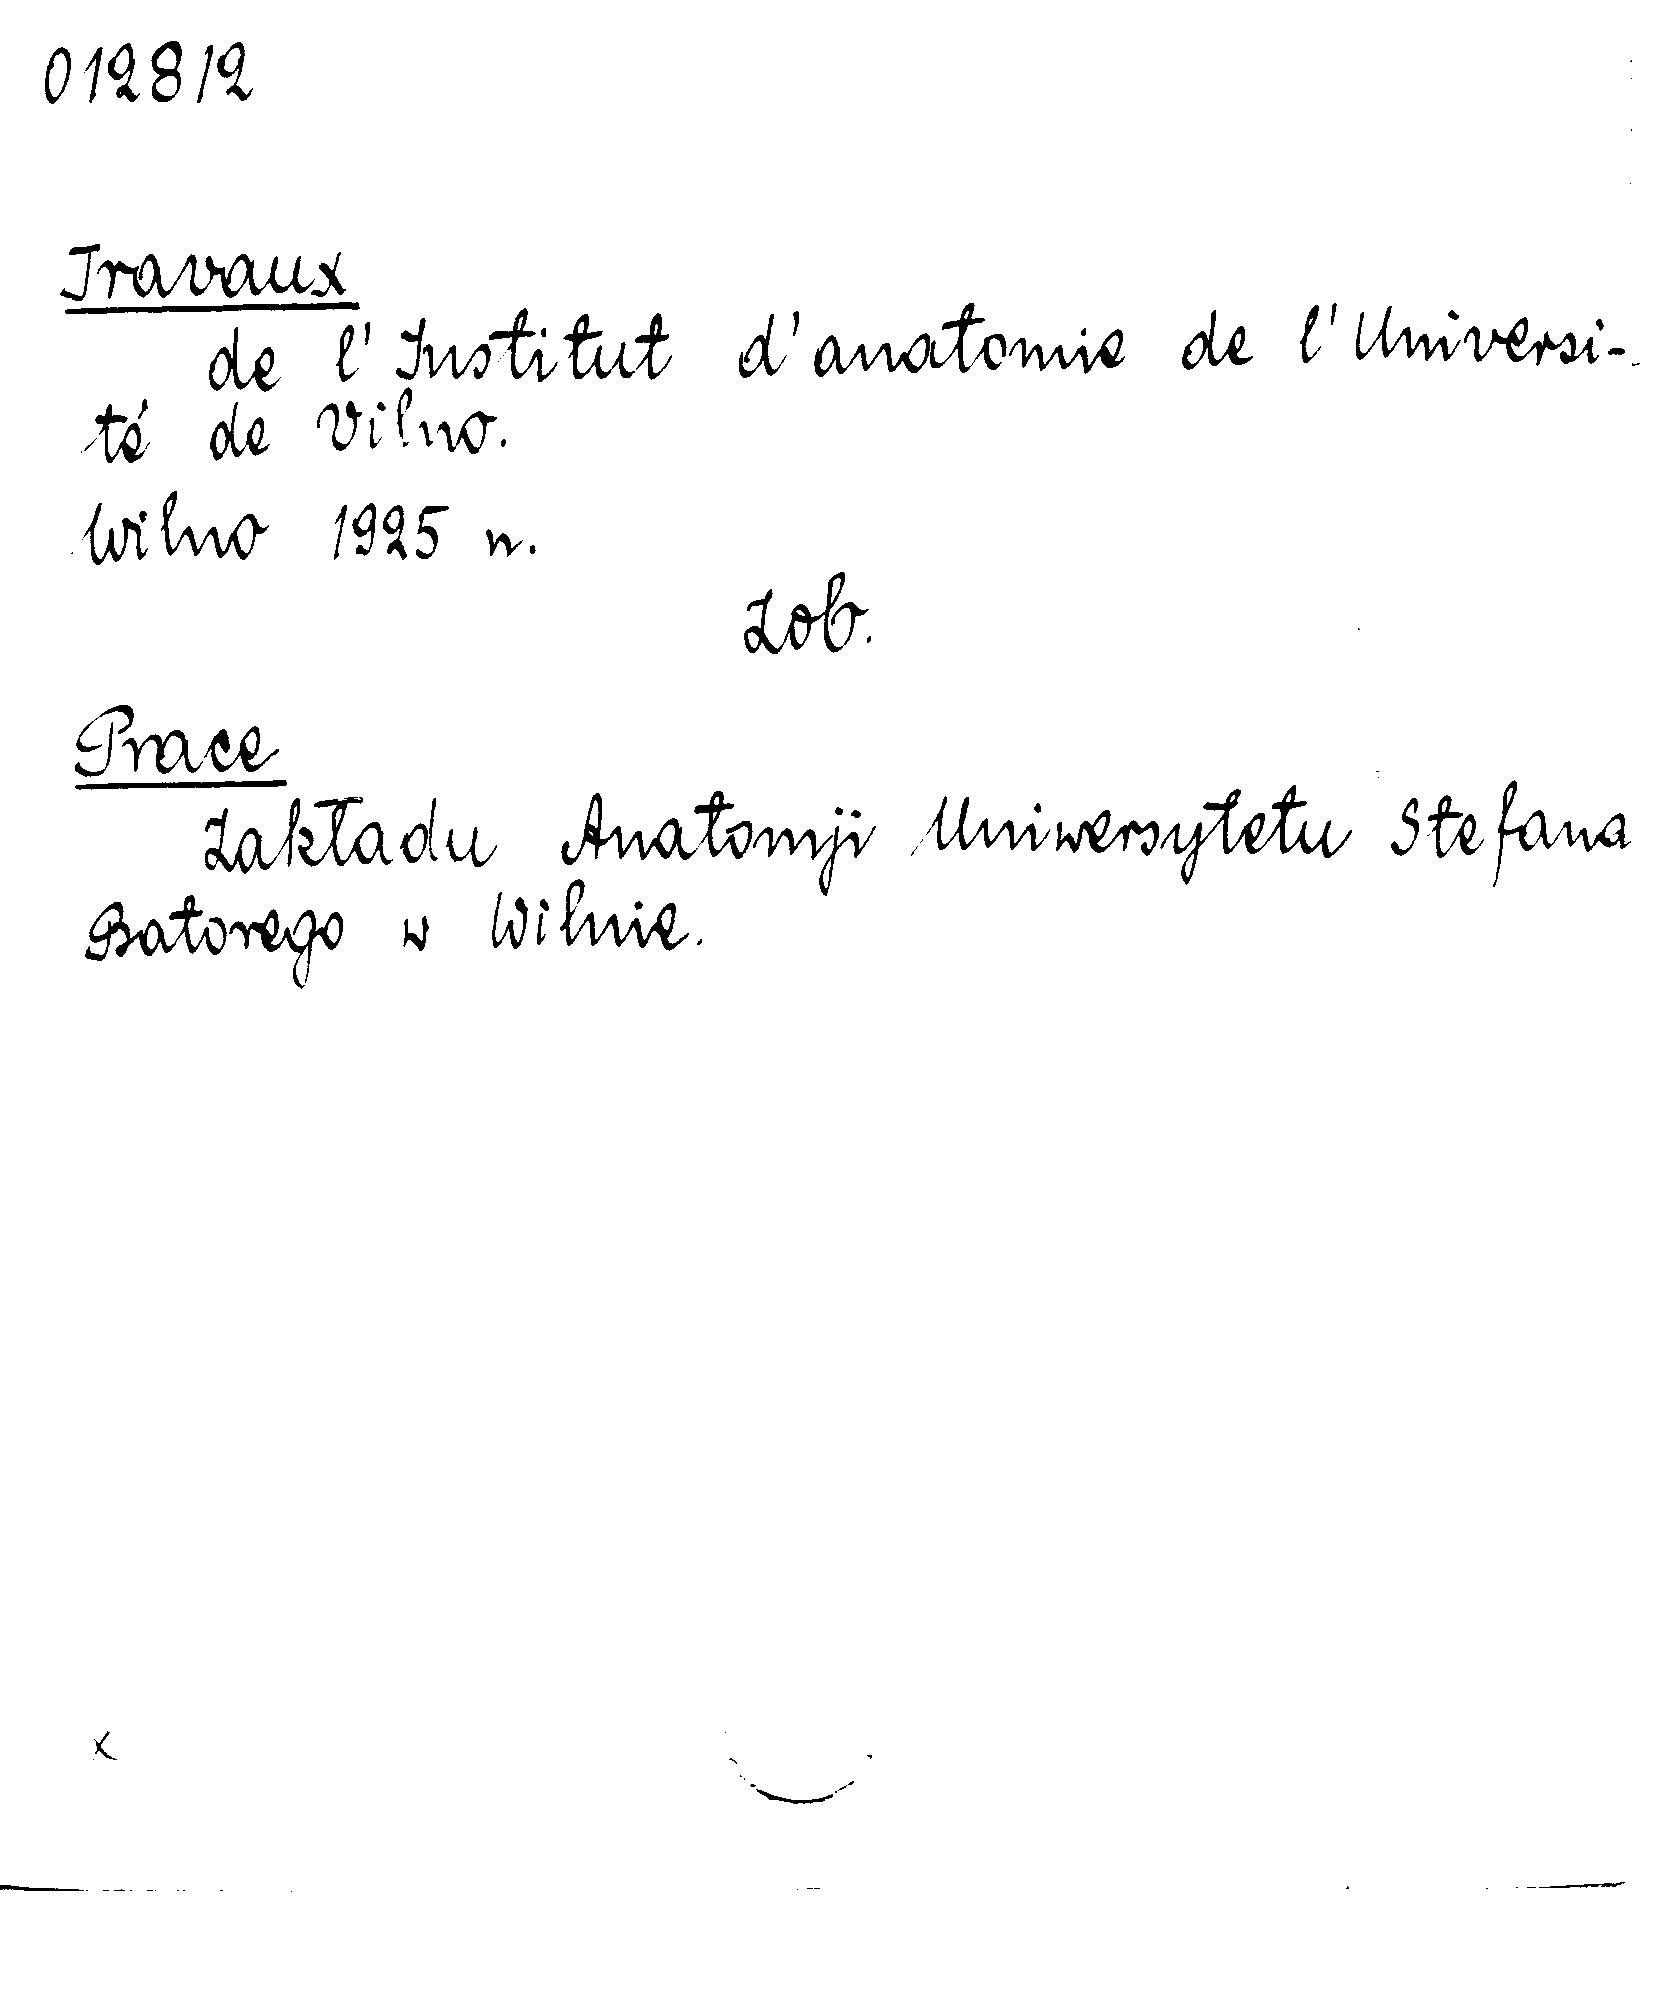 012812
Travaux
de l'Institut d'anatomie de l'Universi-
té de Vilno.
Wilno 1925 n.
Zob.
Prace
Zakładu Anatomji Uniwersytetu Stefana
Batorego w Wilnie.
x